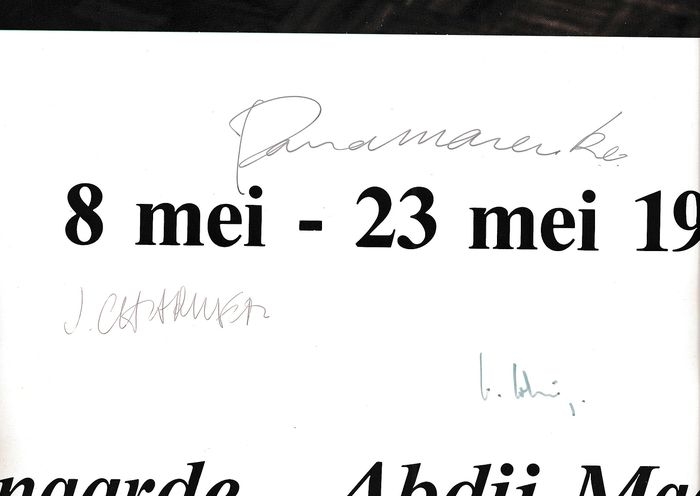 Panamarenko
8 mei - 23 mei 19
J. CHARLIER
ngaarde Abdij Ma